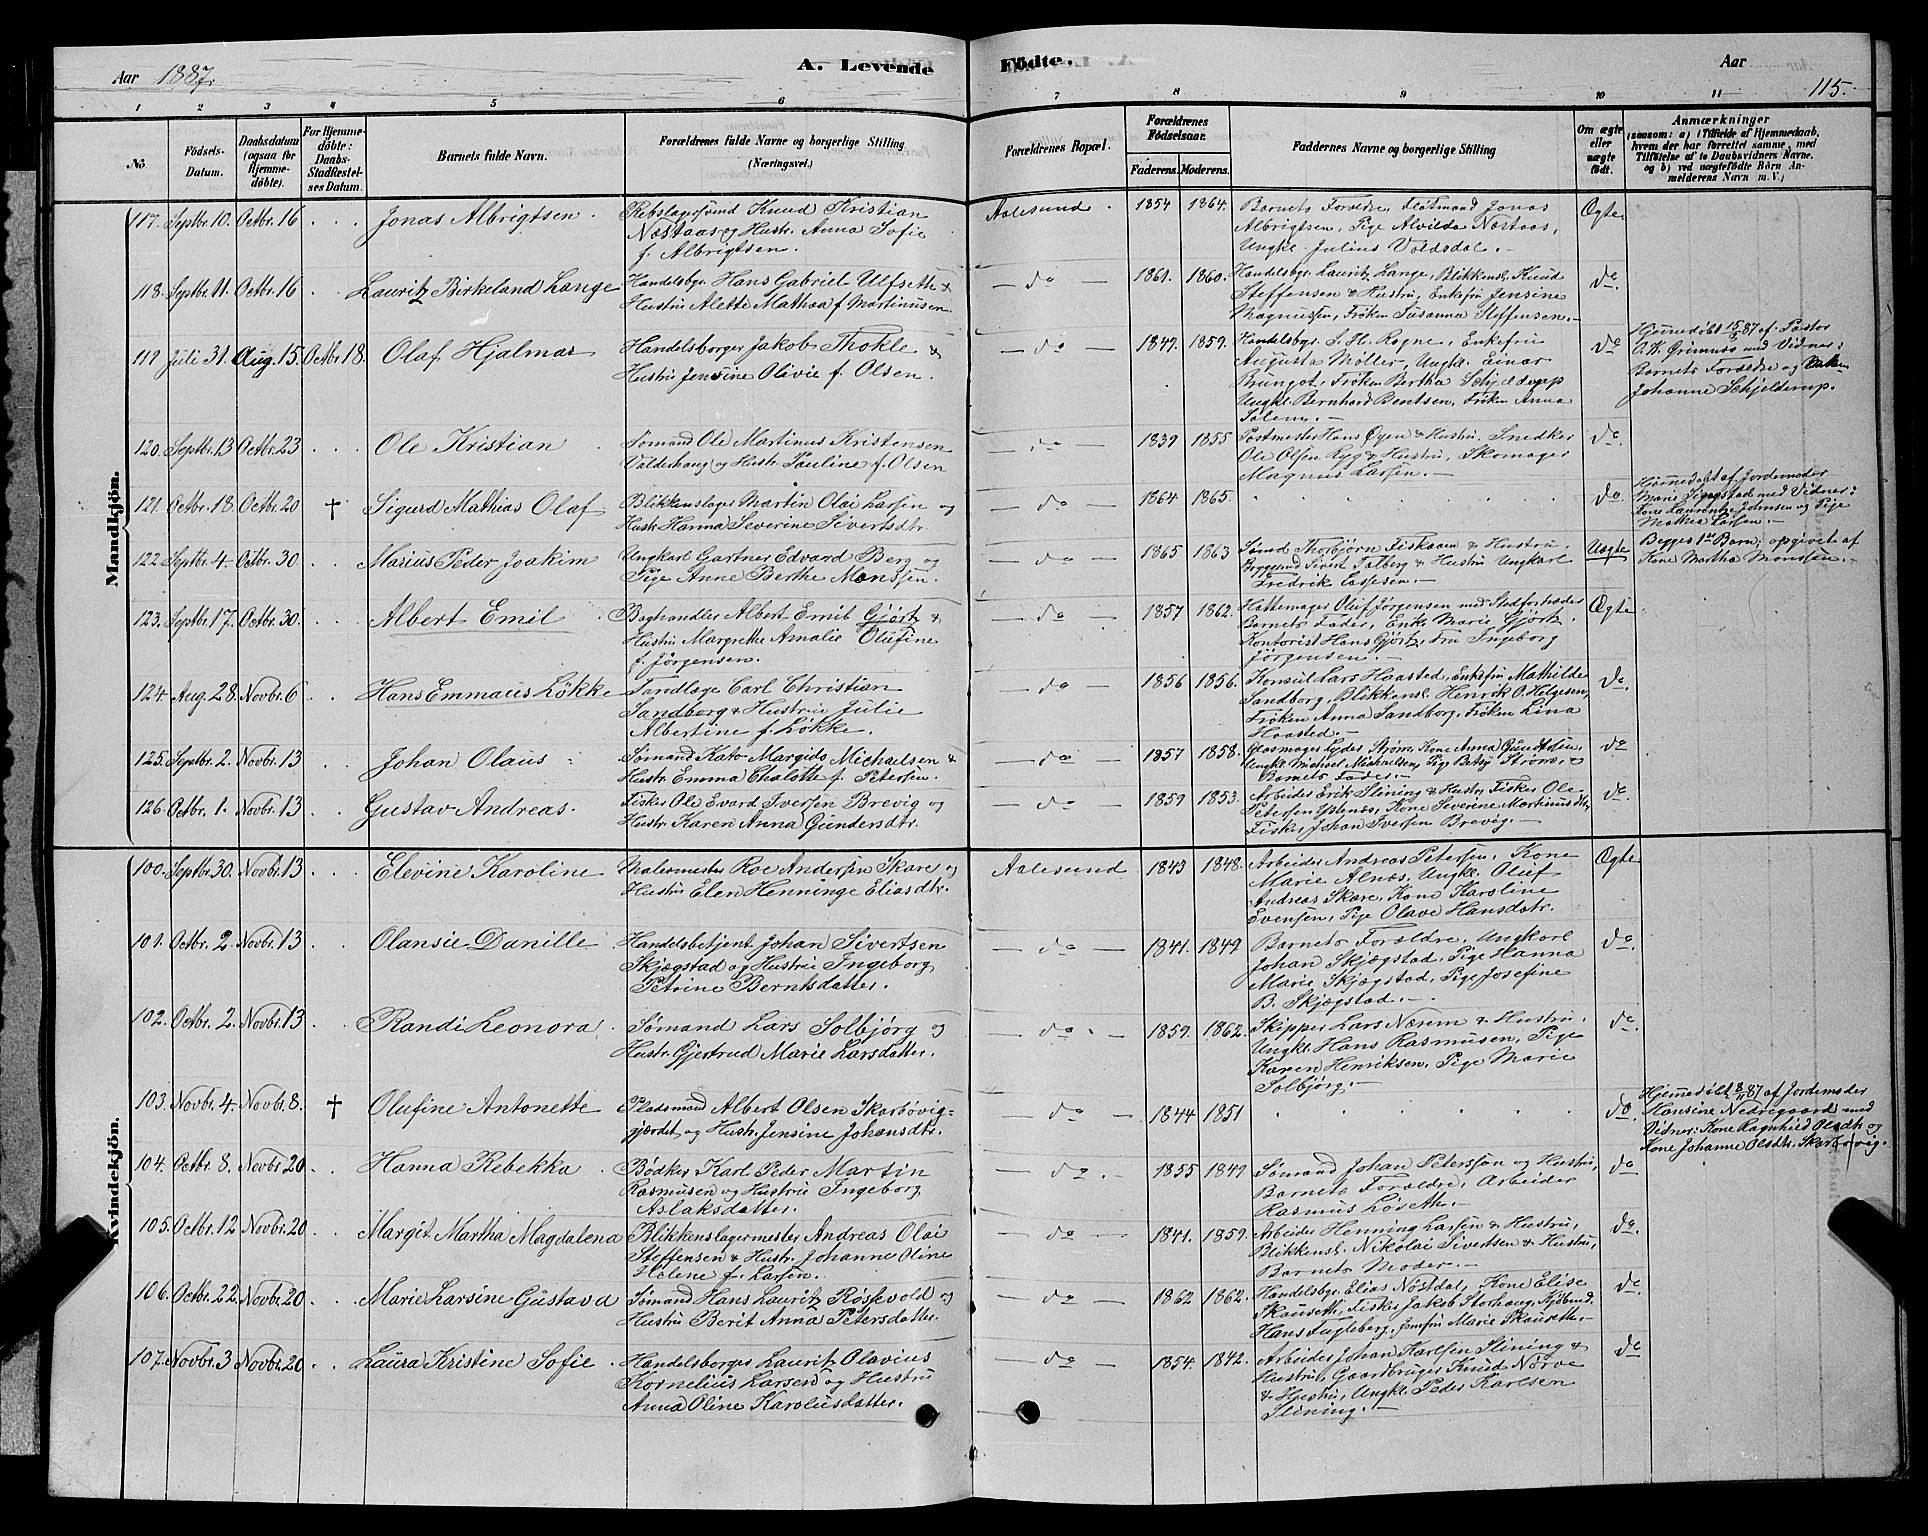 Aar 1887. A. Levende Födte. Aar 115.
1 2 3 4 5 6 7 8 9 10 11
No. Födsels-Datum. Daabsdatum (ogsaa for Hjemmedöbte). For Hjemmedöbte: Daabs-Stadfæstelses Datum. Barnets fulde Navn. Forældrenes fulde Navne og borgerlige Stilling (Næringsvei.) Forældrenes Bopæl. Forældrenes Födselsaar. Faderens. Moderens. Faddernes Navne og borgerlige Stilling Om ægte eller uægte födt. Anmærkninger (saasom: a) i Tilfælde af Hjemmedaab, hvem der har forrettet samme, med Tilföielse af to Daabsvidners Navne. og b) ved uægtefödte Börn Anmelderens Navn m. V.)
Mandkjön.
117. Septbr. 10. Octbr. 16 Jonas Albrigtsen. Rebslagersvend Knud Kristian Aalesund. 1854 1864. Barnets Forældre, Jonas Ægte
Næstaas og Hustr. Anna Sofie Albrigtsen, Pige Alvilda Næstaas,
f. Albrigtsen. Ungkl. Julius Valdsdal.
118. Septbr. 11. Octbr. 16 Lauritz Birkeland Lange Handelsbgr. Hans Gabriel Ulfseth & do 1861. 1860. Handelsbgr. Lauritz Lange, Blikkensl. Knud do
Hustru Alette Mathea f. Martinusen Steffensen & Hustru, Enkefru Jensine
Magnussen, Fröken Susanna Steffensen.
119 Juli 31. Aug. 15. Octbr 18. Olaf Hjalmar Handelsborger Jakob Thokle & do 1849. 1859. Handelsbgr. S. H. Rogne, Enkefru do Hjemmedöbt 15/8 87 af Pastor
Hustru Jensine Olivie f. Olsen. Augusta Möller, Ungkl. Einar O. K. Grimnes med Vidner:
Brungot, Fröken Bertha Schjelderup Barnets Forældre og
Ungkl. Bernhard Bentsen, Fröken Anna Johanne Schjelderup.
Solem.
120. Septbr. 13 Octbr. 23 Ole Kristian Sömand Ole Martinus Kristensen do 1839 1855 Postmester Hans Öyen & Hustru, Snedker do
Valderhaug og Hustr. Pauline f. Olsen Ole Olsen Ryg & Hustru, Skomager
Magnus Larsen.
121. Octbr. 18. Octbr. 20 † Sigurd Mathias Olaf Blikkenslager Martin Olai Larsen og do 1864 1865. do Hjemmedöbt af Jordemoder
Hustr. Hanna Severine Sivertsdtr. Marie med Vidner:
Kone Laurentze Johnsen og Pige
Mathea Larsen.
122 Septbr. 4 Octbr. 30 Marius Peder Joakim Ungkarl Gartner Edvard Berg og do 1865 1863 Sömd. Thorbjörn Fiskaaen & Hustru, Uægte Begges 1ste Barn; opgivet af
Pige Anne Berthe Monssen. Bryggmd Sivert Solberg & Hustru Ungkarl Kone Martha Monssen.
Fredrik Lassesen.
123. Septbr. 17. Octbr. 30. Albert Emil Boghandler Albert Emil Gjörtz & do 1857 1862. Hattemager Oluf Jörgensen med Stedfortræder Ægte
Hustru Margrethe Amalie Olufine Barnets Fader, Enke Marie Gjörtz,
f. Jörgensen. Kontorist Hans Gjörtz, Fru Ingeborg
Jörgensen.
124. Aug. 28. Novbr. 6 Hans Emmaus Lökke Tandlæge Carl Christian do 1856 1856. Konsul Lars Haasted, Enkefru Mathilde do
Sandborg & Hustru Julie Sandborg, Blikkensl. Henrik O. Helgesen,
Albertine f. Lökke. Fröken Anna Sandborg, Fröken Lina
Haasted.
125. Septbr. 2. Novbr. 13 Johan Olaus Sömand Kato Margido Michaelsen & do 1857 1858. Glasmager Peder Ström, Kone Anna do
Hustr. Emma Chalotte f. Petersen. Ungkl. Michael Michaelsen, Pige Betsy Ström, &
Barnets Fader.
126. Octbr. 1. Novbr. 13 Gustav Andreas. Fisker Ole Evard Iversen Brevig og do 1859 1853. Arbeider Erik Slining & Hustr. Fisker Ole do
Hustr. Karen Anna Gundersdtr. Petersen Ystenæs, Kone Severine Martinusdtr.
Fisker Johan Iversen Brevig.
Kvindekjön.
100. Septbr. 30. Novbr. 13 Elevine Karoline Malermester Roe Andersen Skare og Aalesund 1843 1848. Arbeider Andreas Petersen, Kone Ægte
Hustru Elen Henninge Eliasdtr. Marie Alnæs, Ungkl. Oluf
Andreas Skare, Kone Karoline
Evensen, Pige Olave Hansdatr.
101. Octbr. 2. Novbr. 13 Olansie Danille Handelsbetjent Johan Sivertsen do 1841. 1849 Barnets Forældre, Ungkarl do
Skjægstad og Hustru Ingeborg Johan Skjægstad, Pige Hanna
Petrine Berntsdatter. Marie Skjægstad, Pige Josefine
B. Skjægstad.
102. Octbr. 2. Novbr. 13 Randi Leonora Sömand Lars Solbjörg og do 1859. 1862. Skipper Lars Nærem & Hustru, do
Hustr. Gjertrud Marie Larsdatter. Ungkl. Hans Rasmusen, Pige
Karen Henriksen, Pige Marie
Solbjörg.
103. Novbr. 4. Novbr. 8. † Olufine Antonette Pladsmand Albert Olsen Skarbövig- do 1844 1851 do Hjemmedöbt 8/11 87 af Jordemoder
gjærdet og Hustr. Jensine Johansdtr. Hansine Nedregaard med
Vidner: Kone Ragnhild Olsdtr. og
Kone Johanne Olsdtr. Skarbövig.
104. Octbr. 8. Novbr. 20 Hanna Rebekka Bödker Karl Peder Martin do 1855 1849 Sömand Johan Peterssen og Hustru, do
Rasmusen og Hustru Ingeborg Barnets Forældre, Arbeider
Aslaksdatter. Rasmus Löseth.
105. Octbr. 12 Novbr. 20 Margit Martha Magdalena Blikkenslagermester Andreas Olai do 1841. 1859. Arbeider Henning Larsen & Hustru, do
Steffensen & Hustr. Johanne Oline Blikkensl. Nikolai Sivertsen & Hustru,
Helene f. Larsen. Barnets Moder.
106. Octbr. 22. Novbr. 20 Marie Larsine Gustava Sömand Hans Lauritz Rössevold og do 1862 1862. Handelsbgr. Elias Nöstdal, Kone Elise do
Hustru Berit Anna Petersdatter. Skauseth, Fisker Jakob Storhaug, Kjöbmd.
Hans Fugleberg, Jomfru Marie Skauseth.
107. Novbr. 3 Novbr. 20 Laura Kristine Sofie Handelsborger Lauritz Olavius do 1854. 1842. Arbeider Johan Karlsen Slining & do
Kornelius Larsen og Hustru Hustru, Gaardbruger Knud Nörve
Anna Oline Karolusdatter. & Hustru, Ungkl. Peder Karlsen
Slining.